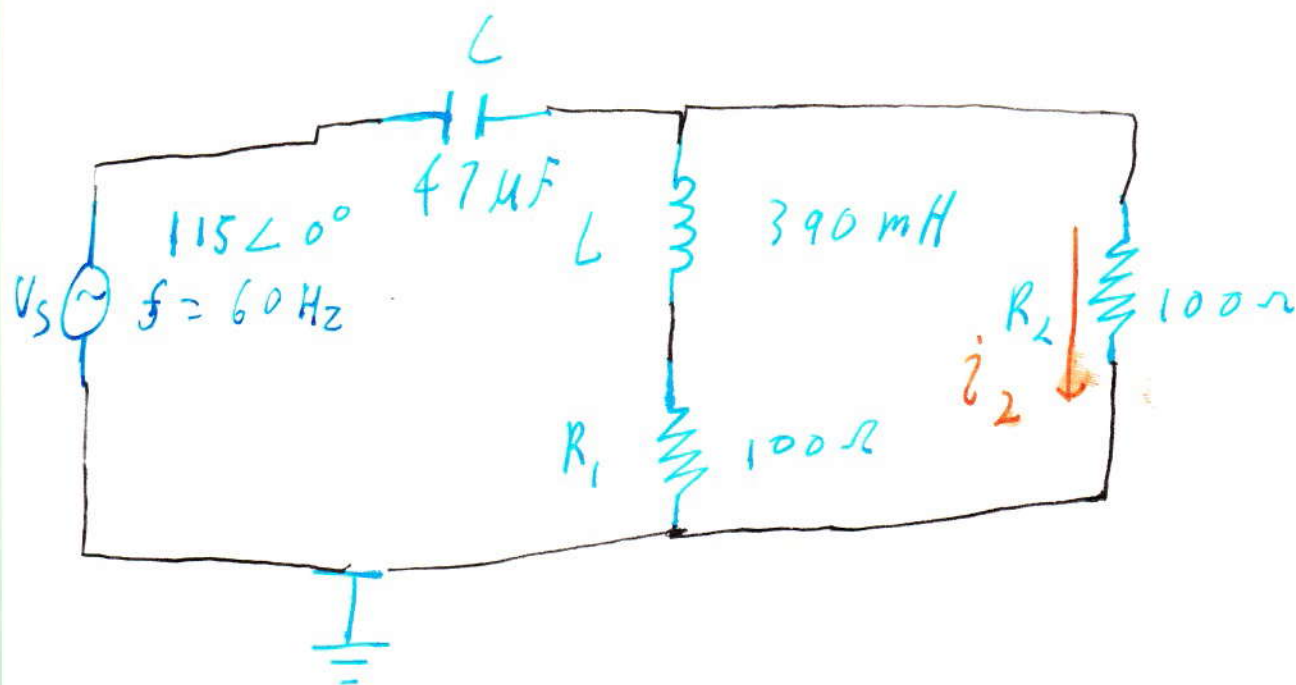 C
47 μF
115∠0°
Vs f = 60 Hz
L 390 mH
R2 100 Ω
i2
R1 100 Ω